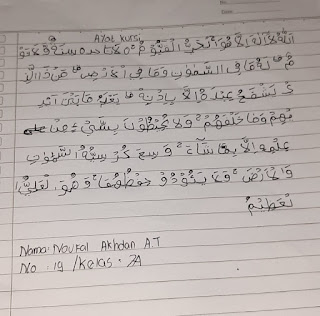 Ayat kursi
اللّٰهُ لَآ اِلٰهَ اِلَّا هُوَ اَلْحَيُّ الْقَيُّوْمُ ەۚ لَا تَأْخُذُهٗ سِنَةٌ وَّلَا نَوْ
مٌۗ لَهٗ مَا فِى السَّمٰوٰتِ وَمَا فِى الْاَرْضِۗ مَنْ ذَا الَّذِ
يْ يَشْفَعُ عِنْدَهٗٓ اِلَّا بِاِذْنِهٖۗ يَعْلَمُ مَا بَيْنَ اَيْدِ
يْهِمْ وَمَا خَلْفَهُمْۚ وَلَا يُحِيْطُوْنَ بِشَيْءٍ مِّنْ
عِلْمِهٖٓ اِلَّا بِمَا شَاۤءَۚ وَسِعَ كُرْسِيُّهُ السَّمٰوٰتِ
وَالْاَرْضَۚ وَلَا يَـُٔوْدُهٗ حِفْظُهُمَاۚ وَهُوَ الْعَلِيُّ ا
لْعَظِيْمُ
Nama: Noufal Akhdan A.T
No : 19 /Kelas : 7A